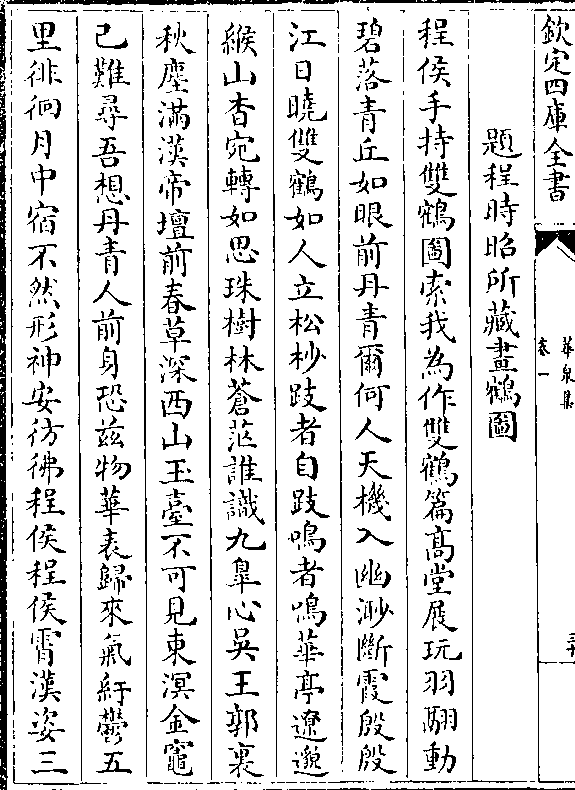 欽定四庫全書
華泉集
卷一
題程時昭所藏畫鶴圖
程侯手持雙鶴圖索我為作雙鶴篇髙堂展玩羽翮動
碧落青丘如眼前丹青爾何人天機入幽渺斷霞殷殷
江日曉雙鶴如人立松杪跂者自跂鳴者鳴華亭遼邈
緱山杳宛轉如思珠樹林蒼茫誰識九臯心吳王郭裏
秋塵滿漢帝壇前春草深西山玉臺不可見東溟金竈
已難尋吾想丹青人前身恐兹物華表歸來氣紆鬱五
里徘徊月中宿不然形神安彷彿程侯程侯霄漢姿三